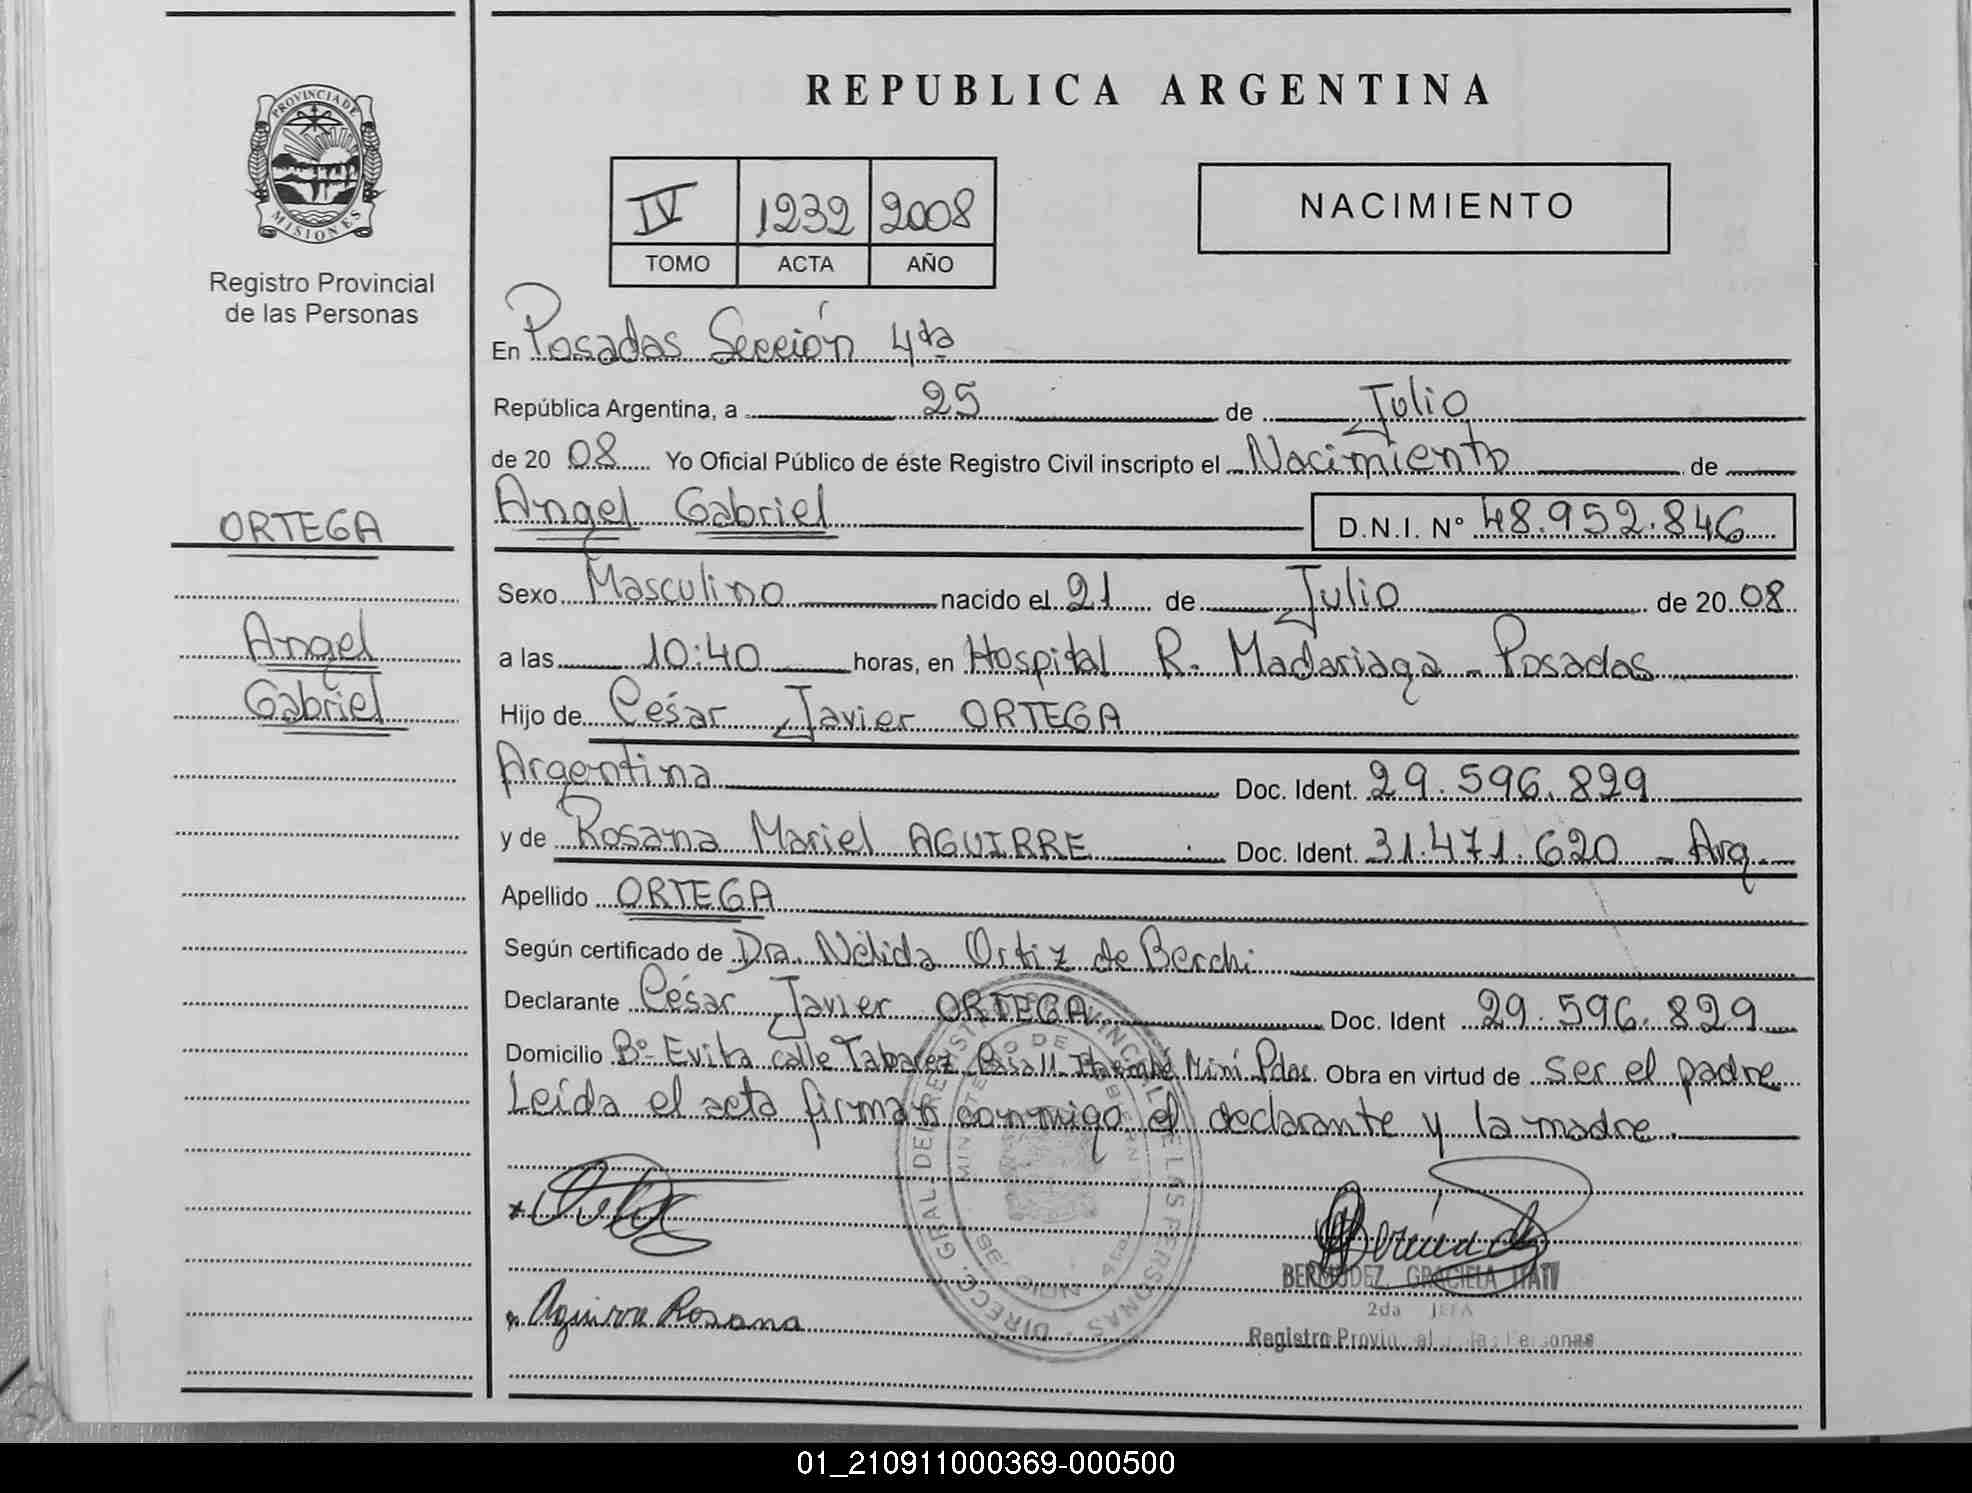 REPUBLICA ARGENTINA
PROVINCIA DE
MISIONES
Registro Provincial
de las Personas
IV 1232 2008
TOMO ACTA AÑO
NACIMIENTO
En Posadas Sección 4ta
República Argentina, a 25 de Julio
de 20 08 Yo Oficial Público de éste Registro Civil inscripto el Nacimiento de
Angel Gabriel D.N.I. Nº 48.952.846
ORTEGA
Angel
Gabriel
Sexo Masculino nacido el 21 de Julio de 20 08
a las 10:40 horas, en Hospital R. Madariaga - Posadas
Hijo de César Javier ORTEGA
Argentina Doc. Ident. 29.596.829
y de Rosana Mariel AGUIRRE Doc. Ident. 31.471.620 - Arg.
Apellido ORTEGA
Según certificado de Dra. Nélida Ortiz de Berchi
Declarante César Javier ORTEGA Doc. Ident 29.596.829
Domicilio Bº Evita calle Tabarez Itaimbé Miní Pdas. Obra en virtud de ser el padre
Leída el acta firman conmigo el declarante y la madre.
Aguirre Rosana
BERMUDEZ, GRACIELA ITATI
2da JEFA
Registro Provincial de las Personas
01_210911000369-000500